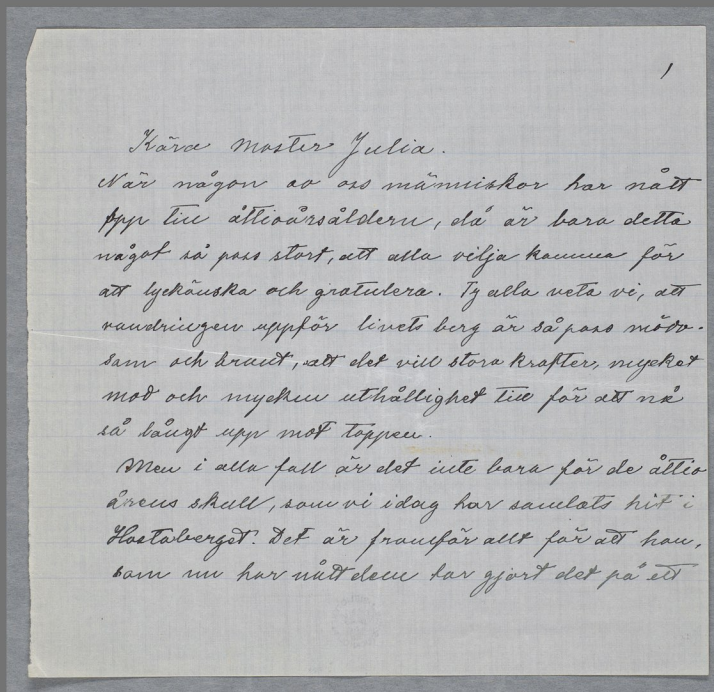 1
Kära moster Julia.
När någon av oss människor har nått
upp till åttioårsåldern, då är bara detta
något så pass stort, att alla vilja komma för
att lyckönska och gratulera. Ty alla veta vi, att
vandringen uppför livets berg är så pass mödo-
sam och brant, att det vill stora krafter, mycket
mod och mycken uthållighet till för att nå
så långt upp mot toppen.
Men i alla fall är det inte bara för de åttio
årens skull, som vi idag har samlats hit i
Hostaberget. Det är framför allt för att hon,
som nu har nått dem har gjort det på ett